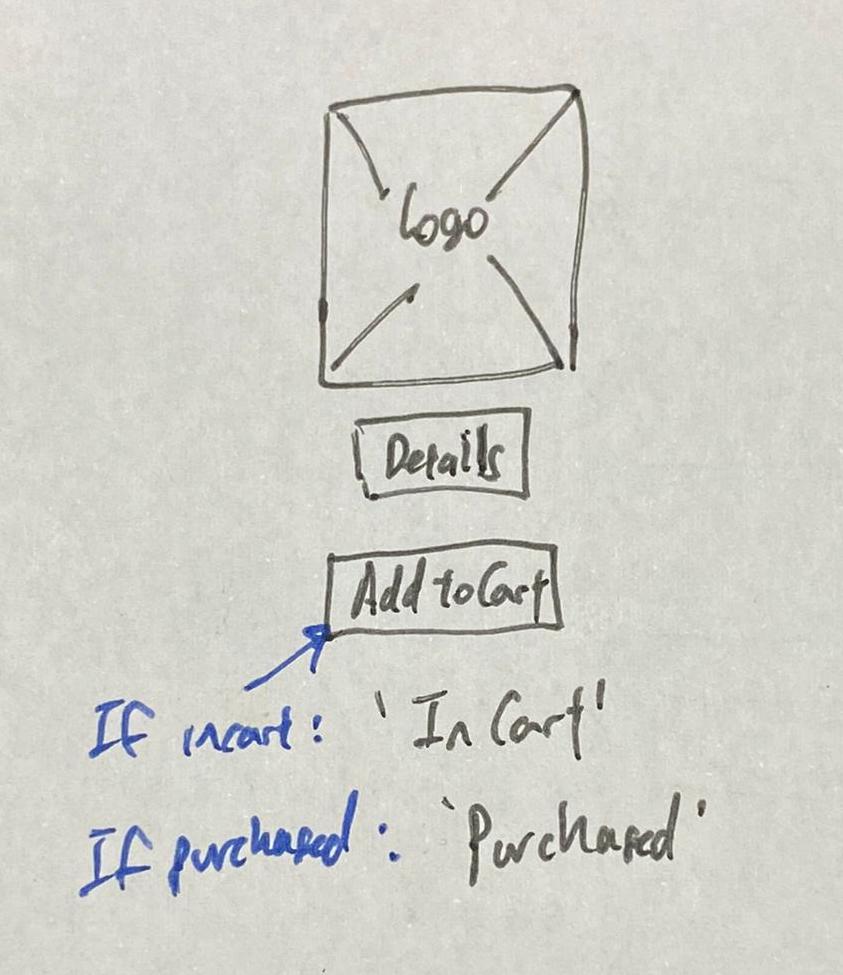 Logo
Details
Add to Cart
If incart: 'In Cart'
If purchased: 'Purchased'